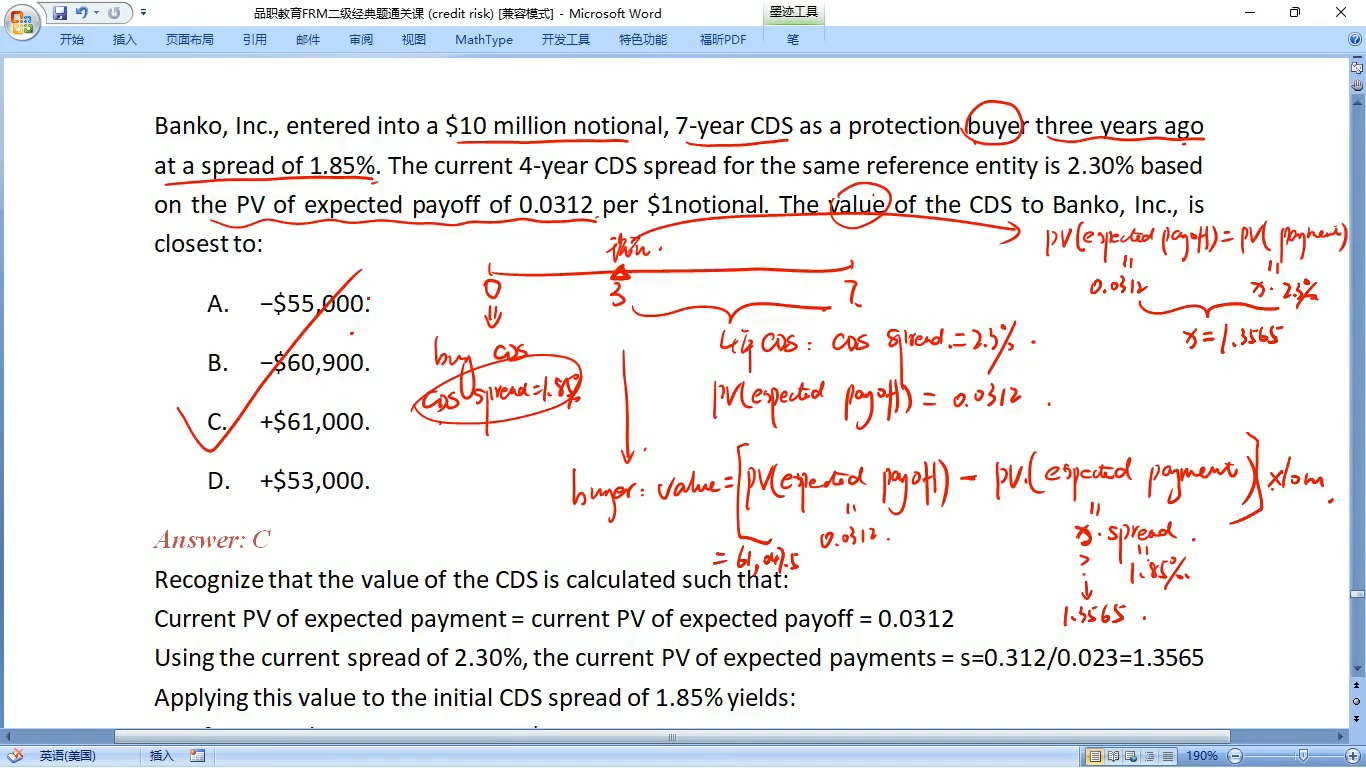 品职教育FRM二级经典题通关课 (credit risk) [兼容模式] - Microsoft Word
墨迹工具
开始 插入 页面布局 引用 邮件 审阅 视图 MathType 开发工具 特色功能 福昕PDF 笔
Banko, Inc., entered into a $10 million notional, 7-year CDS as a protection buyer three years ago
at a spread of 1.85%. The current 4-year CDS spread for the same reference entity is 2.30% based
on the PV of expected payoff of 0.0312 per $1notional. The value of the CDS to Banko, Inc., is
closest to:
PV(expected payoff)=PV(payment)
0.0312 x·2.3%
x=1.3565
0 3 7
A. −$55,000.
B. −$60,900.
C. +$61,000.
D. +$53,000.
buy CDS
CDS spread=1.85%
4年CDS: CDS spread=2.3%.
PV(expected payoff) = 0.0312.
buyer: value=[PV(expected payoff) − PV(expected payment)]×10m.
0.0312.
x·spread.
?
1.85%.
1.3565.
= 61,047.5
Answer: C
Recognize that the value of the CDS is calculated such that:
Current PV of expected payment = current PV of expected payoff = 0.0312
Using the current spread of 2.30%, the current PV of expected payments = s=0.312/0.023=1.3565
Applying this value to the initial CDS spread of 1.85% yields:
英语(美国) 插入 190%